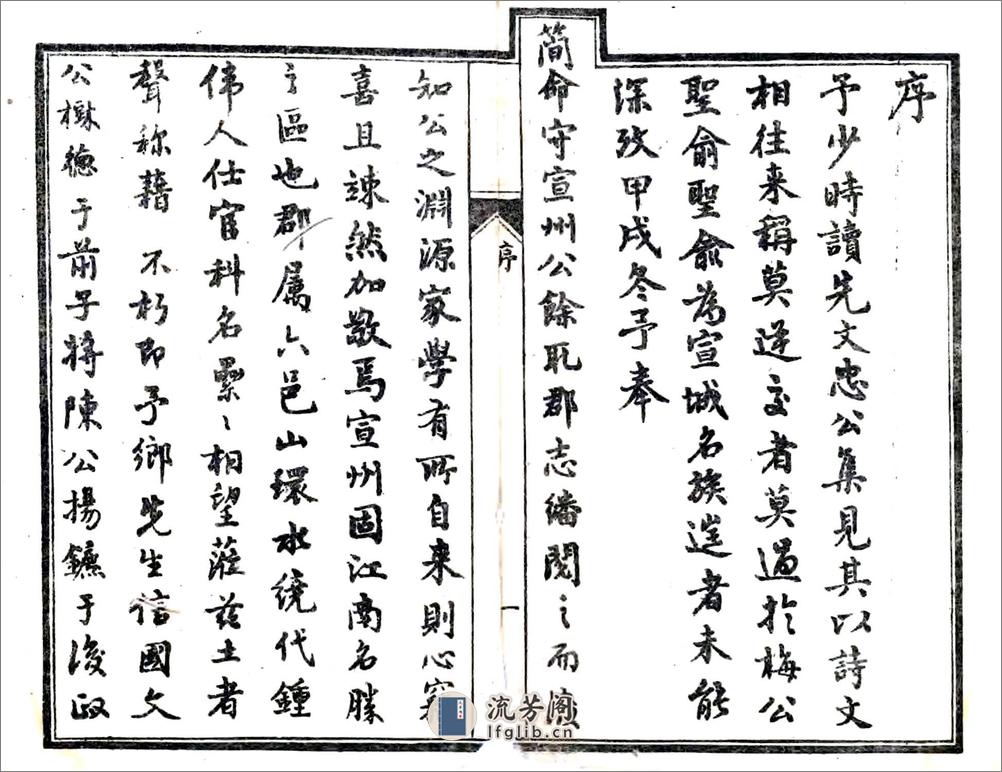 序
予少時讀先文忠公集見其以詩文
相往来稱莫逆交者莫過於梅公
聖俞聖俞為宣城名族遥者未能
深攷甲戌冬予奉
簡命守宣州公餘取郡志繙閱之而
知公之淵源家學有所自来則心窃
喜且竦然加敬焉宣州固江南名勝
之區也郡属六邑山環水繞代鍾
偉人仕宦科名纍〻相望蒞兹土者
聲称藉 不朽即予鄉先生信國文
公樹德于前子將陳公揚鑣于後政
序
一
流芳阁
lfglib.cn